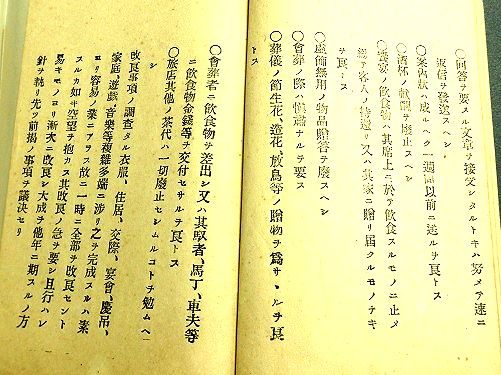 〇回答ヲ要スル文章ヲ接受シタルトキハ努メテ速ニ
返信ヲ發送スヘシ
〇案內狀ハ成ルヘク一週間以前ニ送ルヲ良トス
〇酒杯ノ獻酬ヲ廢止スヘシ
〇饗宴ノ飮食物ハ其席上ニ於テ飮食スルモノニ止メ
總テ客人ノ持還リ又ハ其家ニ贈リ届クルモノナキ
ヲ良トス
〇虛飾無用ノ物品贈答ヲ廢スヘシ
〇會葬ノ際ハ愼肅ナルヲ要ス
〇葬儀ノ節生花、造花、放鳥等ノ贈物ヲ爲サヽルヲ良
トス
〇會葬者ニ飮食物ヲ差出シ又ハ其馭者、馬丁、車夫等
ニ飮食物金錢等ヲ交付セサルヲ良トス
〇旅店其他ノ茶代ハ一切廢止セシムルコトヲ勉ムヘ
シ
改良事項ノ調査タル衣服、住居、交際、宴會、慶吊、
家庭、遊戲、音樂等複雜多端ニ涉リ之ヲ完成スルハ素
ヨリ容易ノ業ニアラス故ニ一時ニ全部ヲ改良セント
スルカ如キ空望ヲ抱カス其改良ノ急ヲ要シ且行ハレ
易キモノヨリ漸次ニ改良シ大成ヲ他年ニ期スルノ方
針ヲ執リ先ツ前揭ノ事項ヲ議決セリ